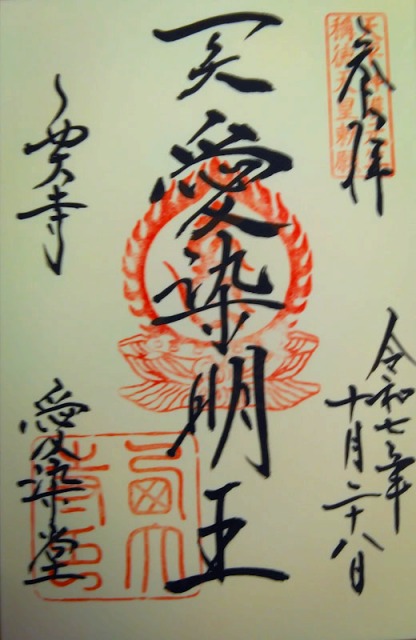 奉拝
稱徳天皇勅願
令和七年
十月二十八日
愛染明王
西大寺
愛染堂